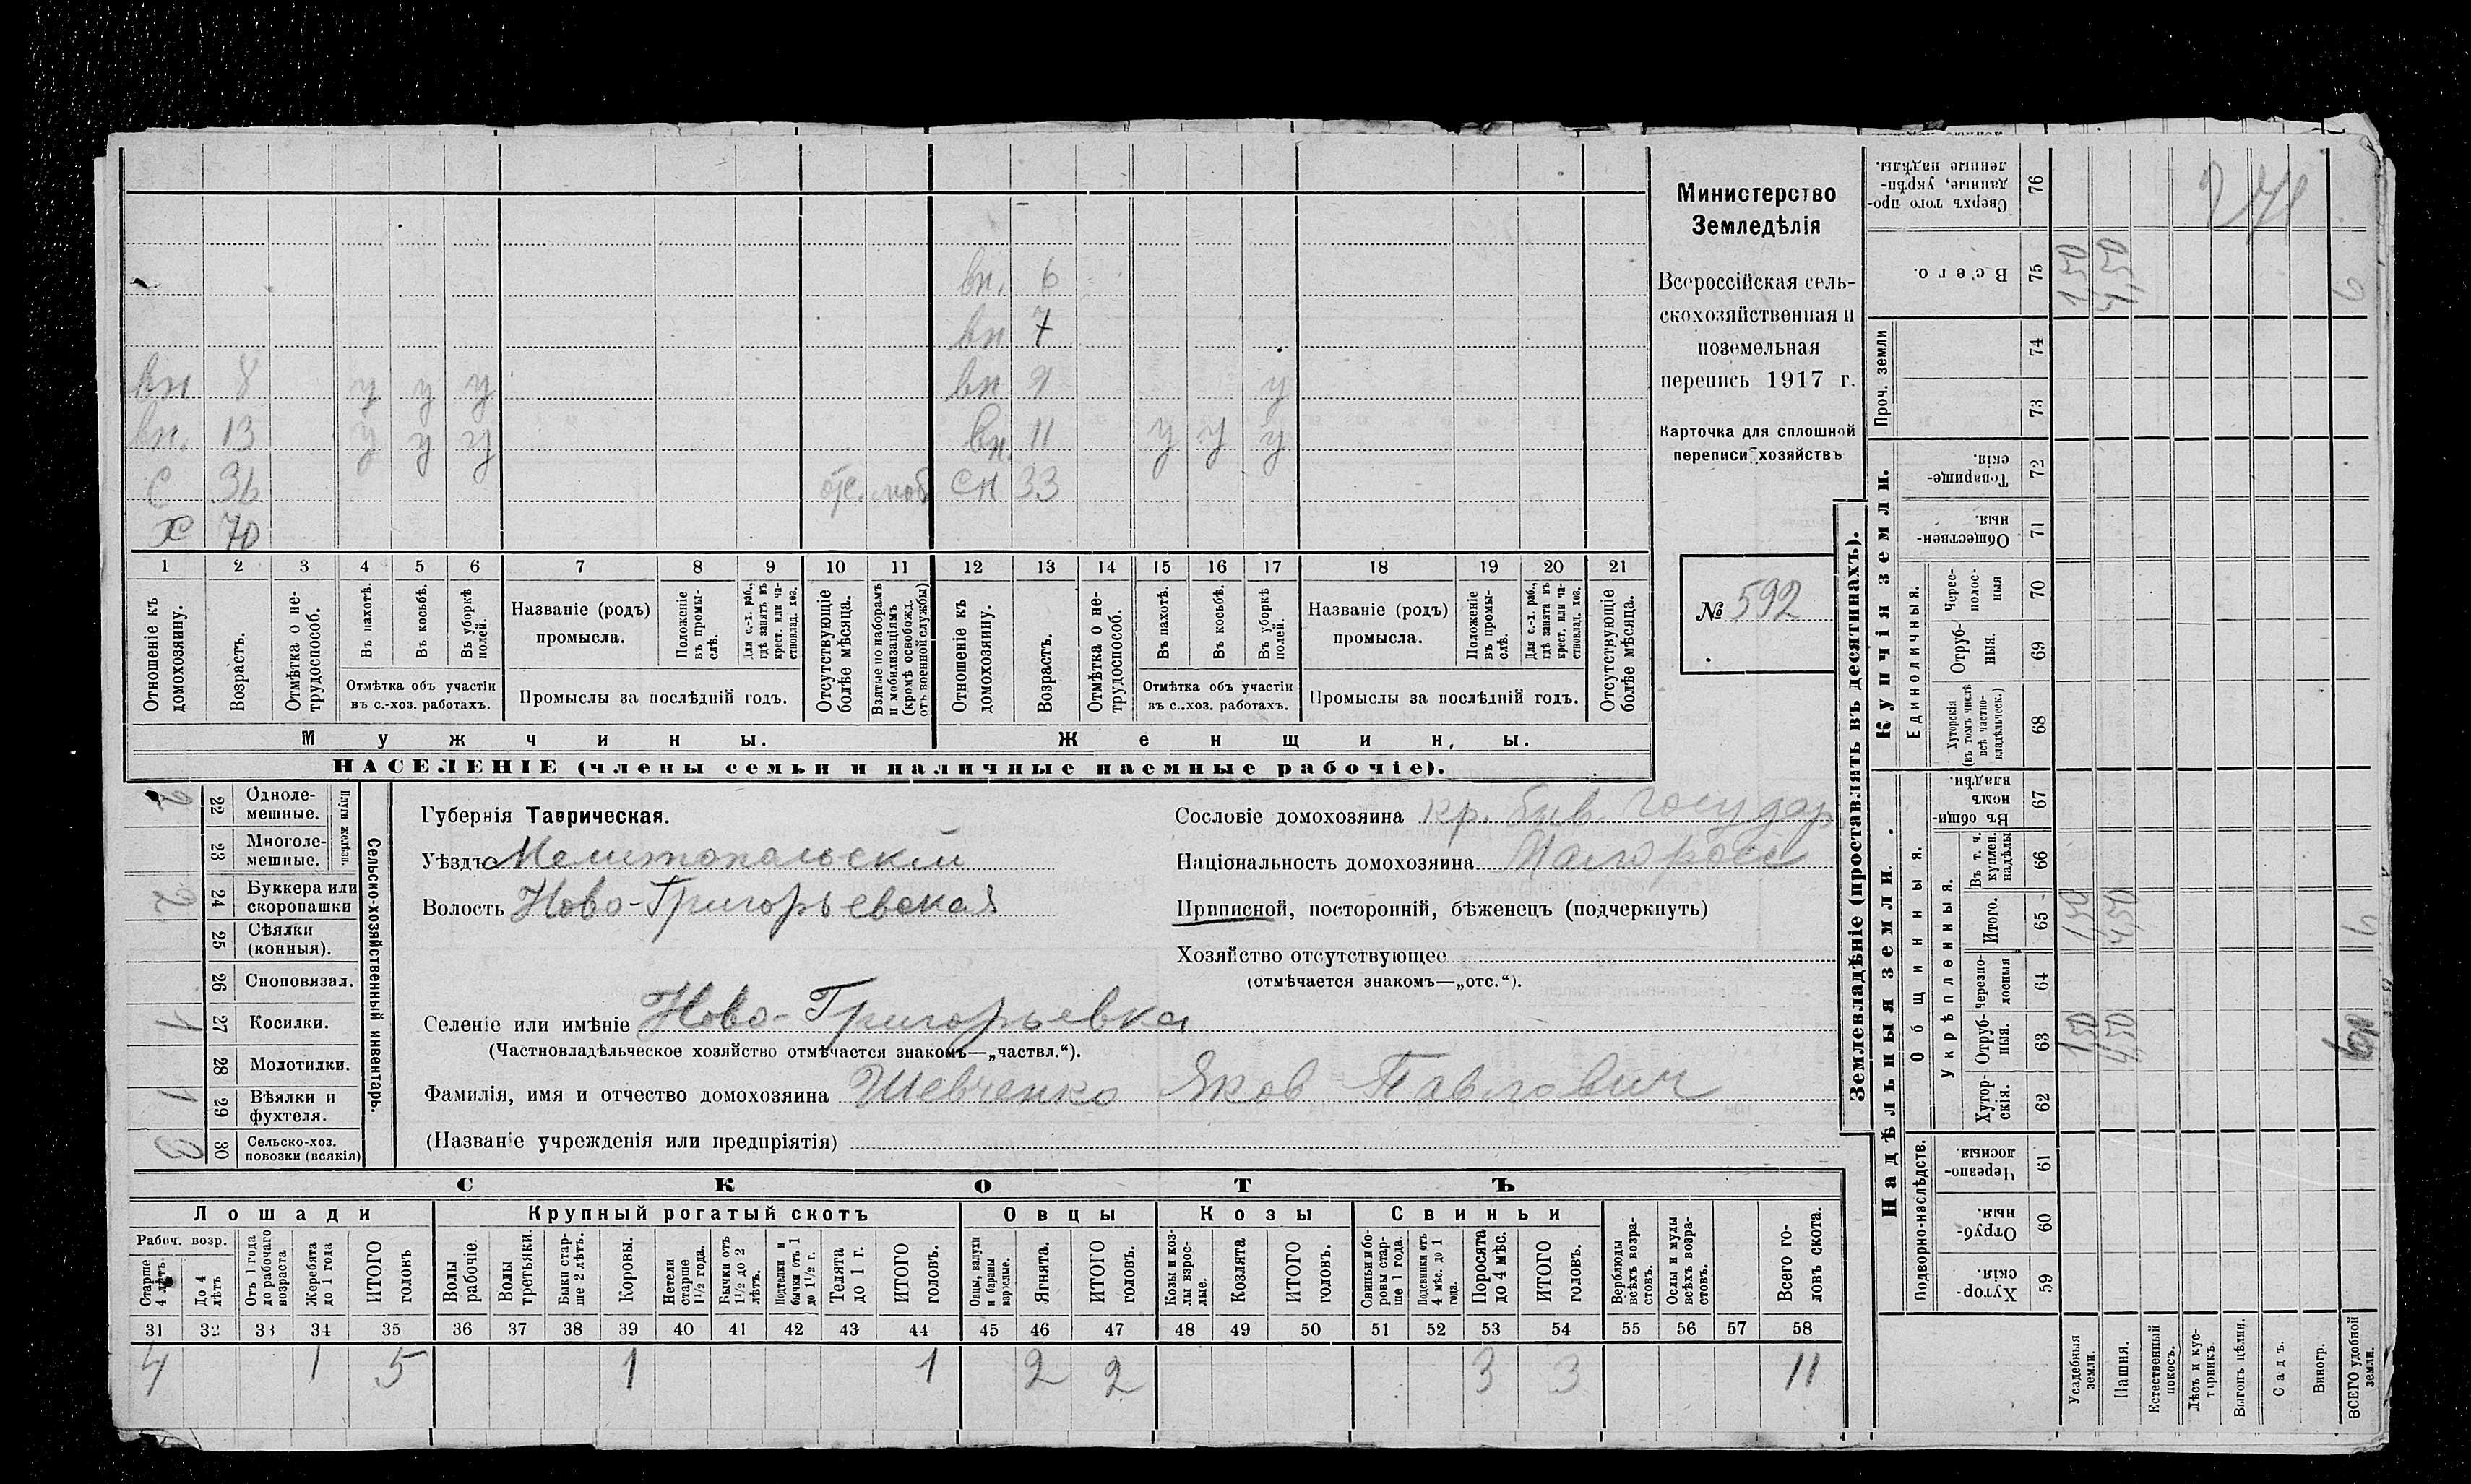 вн. 6
вн 7
вн 8 у у у вн 9 у
вн. 13 у у у вн. 11 у у у
с 36 отс. моб. сн 33
х 70
1 2 3 4 5 6 7 8 9 10 11 12 13 14 15 16 17 18 19 20 21
Отношеніе къ домохозяину.
Возрастъ.
Отмѣтка о нетрудоспособ.
Въ пахотѣ.
Въ косьбѣ.
Въ уборкѣ полей.
Отмѣтка объ участіи
въ с.-хоз. работахъ.
Названіе (родъ)
промысла.
Положеніе въ промы-слѣ.
Для с.-х. раб., гдѣ занятъ въ крест. или ча-стновлад. хоз.
Промыслы за послѣдній годъ.
Отсутствующіе болѣе мѣсяца.
Взятые по наборамъ и мобилизаціямъ (кромѣ освобожд. отъ военной службы)
Отношеніе къ домохозяину.
Возрастъ.
Отмѣтка о не-трудоспособ.
Въ пахотѣ.
Въ косьбѣ.
Въ уборкѣ полей.
Отмѣтка объ участіи
въ с.-хоз. работахъ.
Названіе (родъ)
промысла.
Положеніе въ промы-слѣ.
Для с.-х. раб., гдѣ занята въ крест. или ча-стновлад. хоз.
Промыслы за послѣдній годъ.
Отсутствующіе болѣе мѣсяца.
Мужчины.
Женщины.
НАСЕЛЕНІЕ (члены семьи и наличные наемные рабочіе).
Министерство
Земледѣлія
Всероссійская сель-
скохозяйственная и
поземельная
перепись 1917 г.
Карточка для сплошной
переписи хозяйствъ
№ 592
2 22 Одноле-мешные.
23 Многоле-мешные.
Плуги желѣзн.
2 24 Буккера или скоропашки
25 Сѣялки (конныя).
26 Сноповязал.
1 27 Косилки.
28 Молотилки.
1 29 Вѣялки и фухтеля.
2 30 Сельско-хоз. повозки (всякія)
Сельско-хозяйственный инвентарь.
Губернія Таврическая.
Уѣздъ Мелитопольскій
Волость Ново-Григорьевская
Сословіе домохозяина кр. быв. государ.
Національность домохозяина Малоросс
Приписной, посторонній, бѣженецъ (подчеркнуть)
Хозяйство отсутствующее
(отмѣчается знакомъ—„отс.“).
Селеніе или имѣніе Ново-Григорьевка
(Частновладѣльческое хозяйство отмѣчается знакомъ—„частвл.“).
Фамилія, имя и отчество домохозяина Шевченко Яков Павлович
(Названіе учрежденія или предпріятія)
СКОТЪ
Лошади Крупный рогатый скотъ Овцы Козы Свиньи
Рабоч. возр.
Старше 4 лѣтъ.
До 4 лѣтъ
Отъ 1 года до рабочаго возраста
Жеребята до 1 года
ИТОГО головъ
Волы рабочіе.
Волы третьяки.
Быки стар-ше 2 лѣтъ.
Коровы.
Нетели старше 1½ года.
Бычки отъ 1½ до 2 лѣтъ.
Подтелки и бычки отъ 1 до 1½ г.
Телята до 1 г.
ИТОГО головъ.
Овцы, валухи и бараны взрослые.
Ягнята.
ИТОГО головъ.
Козы и коз-лы взрос-лые.
Козлята
ИТОГО головъ.
Свиньи и бо-ровы стар-ше 1 года.
Подсвинки отъ 4 мѣс. до 1 года.
Поросята до 4 мѣс.
ИТОГО головъ.
Верблюды всѣхъ возра-стовъ.
Ослы и мулы всѣхъ возра-стовъ.
Всего го-ловъ скота.
31 32 33 34 35 36 37 38 39 40 41 42 43 44 45 46 47 48 49 50 51 52 53 54 55 56 57 58
4 1 5 1 1 2 2 3 3 11
Землевладѣніе (проставлять въ десятинахъ).
Надѣльныя земли.
Купчія земли.
Проч. земли
Подворно-наслѣдств.
Общинныя.
Укрѣпленныя.
Единоличныя.
Сверхъ того про-данные, укрѣп-ленные надѣлы. 76
Всего. 75 1,50 4,50 6
74
73
Товарище-скія. 72
Обществен-ныя. 71
Черес-полос-ныя 70
Отруб-ныя. 69
Хуторскія (въ томъ числѣ всѣ частно-владѣльческ.) 68
Въ общи-номъ владѣн. 67
Въ т. ч. куплен. надѣлы 66
Итого. 65 1,50 4,50 6
Черезпо-лосныя 64
Отруб-ныя. 63 1,50 4,50
Хутор-скія. 62
Черезпо-лосныя. 61
Отруб-ныя. 60
Хутор-скія. 59
Усадебныя земли.
Пашня.
Естественный покосъ.
Лѣсъ и кус-тарникъ.
Выгонъ цѣлин.
Садъ.
Виногр.
ВСЕГО удобной земли.